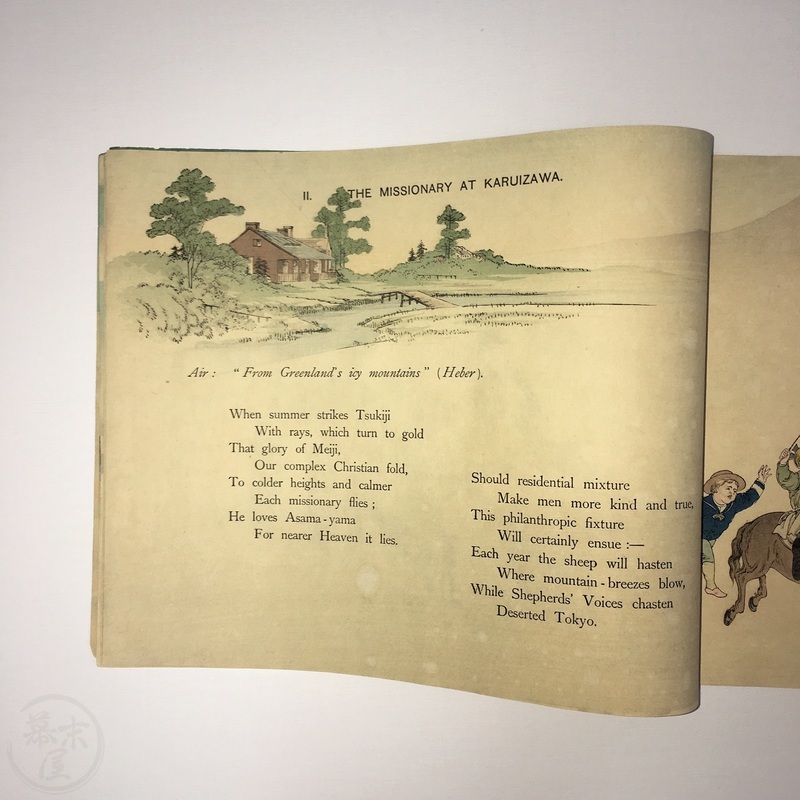 II. THE MISSIONARY AT KARUIZAWA.
Air: "From Greenland's icy mountains" (Heber).
When summer strikes Tsukiji
With rays, which turn to gold
That glory of Meiji,
Our complex Christian fold,
To colder heights and calmer
Each missionary flies;
He loves Asama-yama
For nearer Heaven it lies.
Should residential mixture
Make men more kind and true,
This philanthropic fixture
Will certainly ensue:—
Each year the sheep will hasten
Where mountain-breezes blow,
While Shepherds' Voices chasten
Deserted Tokyo.
幕末屋